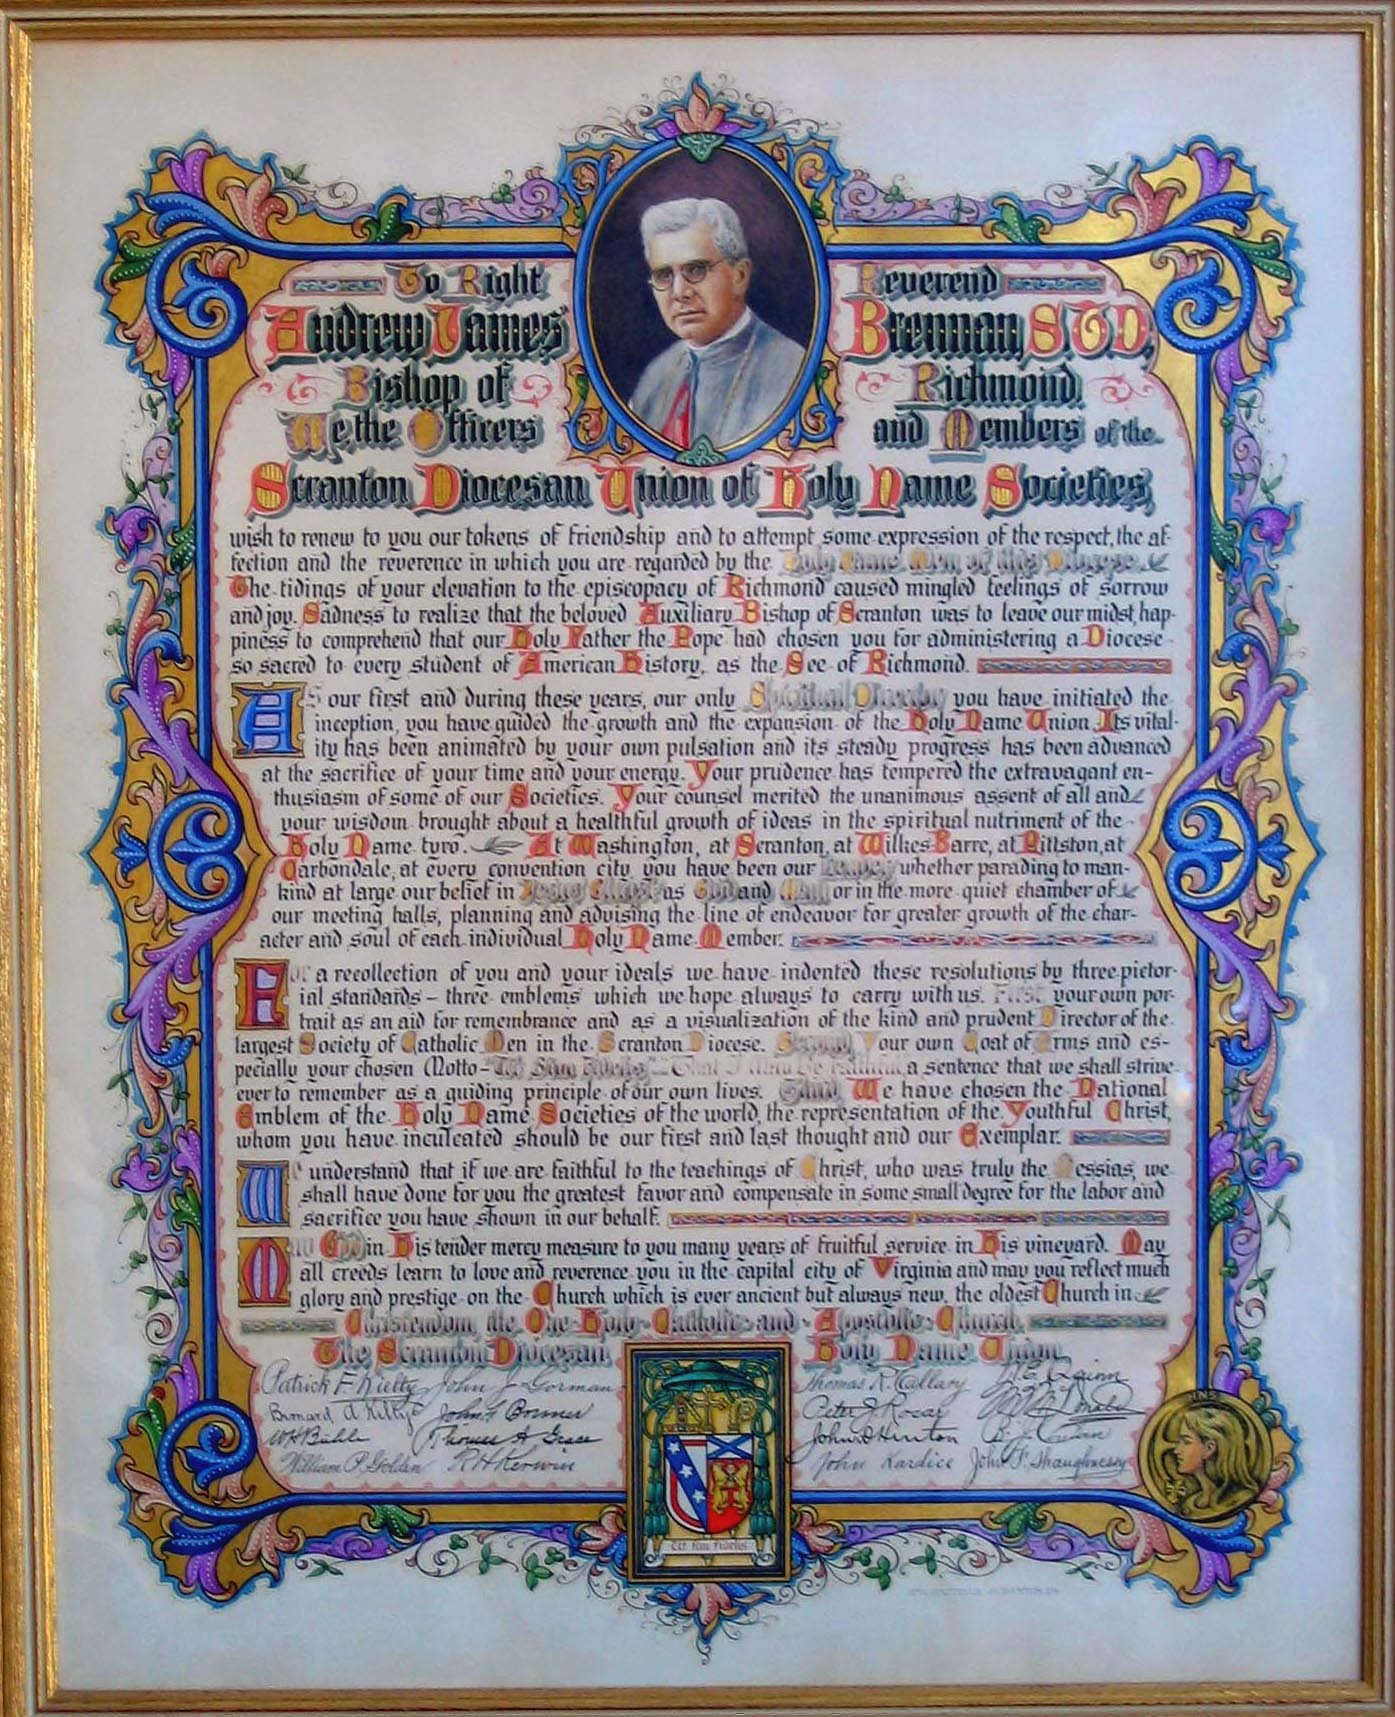 To Right Reverend
Andrew James Brennan, S.T.D.,
Bishop of Richmond,
We, the Officers and Members of the
Scranton Diocesan Union of Holy Name Societies,
wish to renew to you our tokens of friendship and to attempt some expression of the respect, the af-
fection and the reverence in which you are regarded by the Holy Name Men of this Diocese.
The tidings of your elevation to the episcopacy of Richmond caused mingled feelings of sorrow
and joy. Sadness to realize that the beloved Auxiliary Bishop of Scranton was to leave our midst, hap-
piness to comprehend that our Holy Father the Pope had chosen you for administering a Diocese
so sacred to every student of American History, as the See of Richmond.
As our first and during these years, our only Spiritual Director you have initiated the
inception, you have guided the growth and the expansion of the Holy Name Union. Its vital-
ity has been animated by your own pulsation and its steady progress has been advanced
at the sacrifice of your time and your energy. Your prudence has tempered the extravagant en-
thusiasm of some of our Societies. Your counsel merited the unanimous assent of all and
your wisdom brought about a healthful growth of ideas in the spiritual nutriment of the
Holy Name tyro. At Washington, at Scranton, at Wilkes-Barre, at Pittston, at
Carbondale, at every convention city you have been our Leader, whether parading to man-
kind at large our belief in Jesus Christ as God and Man or in the more quiet chamber of
our meeting halls, planning and advising the line of endeavor for greater growth of the char-
acter and soul of each individual Holy Name Member.
For a recollection of you and your ideals we have indented these resolutions by three pictor-
ial standards – three emblems which we hope always to carry with us. First your own por-
trait as an aid for remembrance and as a visualization of the kind and prudent Director of the
largest Society of Catholic Men in the Scranton Diocese. Second Your own Coat of Arms and es-
pecially your chosen Motto – "Ut Sim Fidelis" – That I may be faithful, a sentence that we shall strive
ever to remember as a guiding principle of our own lives. Third, We have chosen the National
Emblem of the Holy Name Societies of the world, the representation of the Youthful Christ,
whom you have inculcated should be our first and last thought and our Exemplar.
We understand that if we are faithful to the teachings of Christ, who was truly the Messias, we
shall have done for you the greatest favor and compensate in some small degree for the labor and
sacrifice you have shown in our behalf.
May God in His tender mercy measure to you many years of fruitful service in His vineyard. May
all creeds learn to love and reverence you in the capital city of Virginia and may you reflect much
glory and prestige on the Church which is ever ancient but always new, the oldest Church in
Christendom, the One Holy Catholic and Apostolic Church.
The Scranton Diocesan Holy Name Union
Patrick F. Kielty John J. Gorman Thomas R. Callary M.E. Quinn
Bernard A. Kelly John F. Bonner Peter J. Rosar
WH Buhle Thomas A. Grace John D Hinton
William P. Golden R H Kerwin John Kardice John F. Shaughnessy
IHS
Ut Sim Fidelis